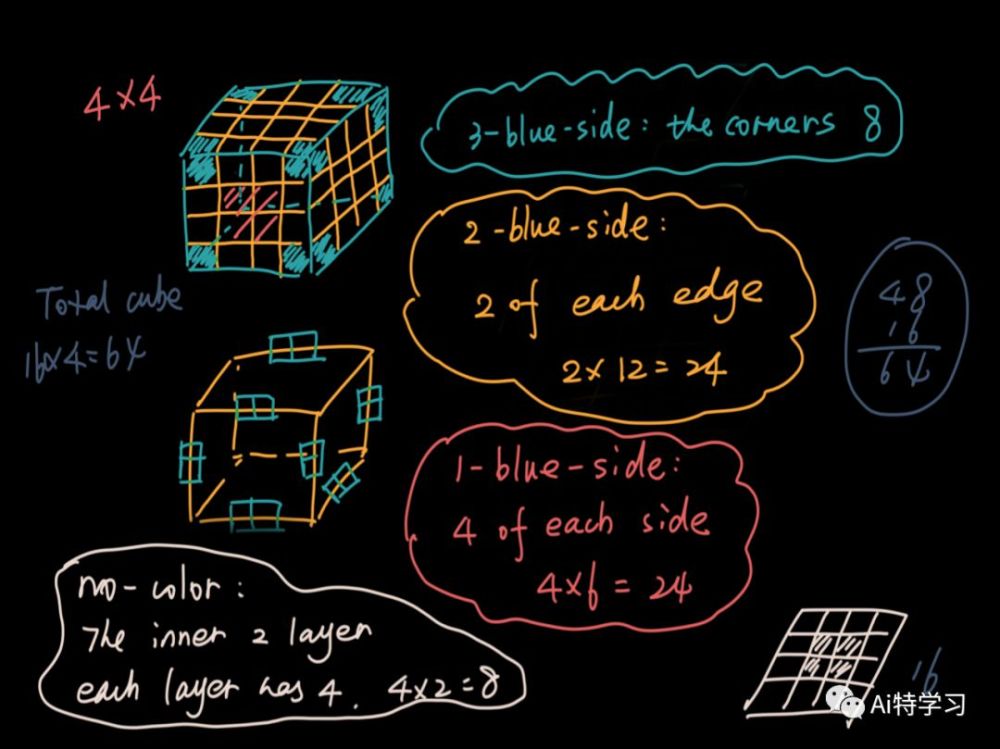 4×4
3-blue-side: the corners 8
2-blue-side:
2 of each edge
2×12=24
Total cube
16×4=64
48
16
64
1-blue-side:
4 of each side
4×6=24
no-color:
The inner 2 layer
each layer has 4. 4×2=8
16
Ai特学习